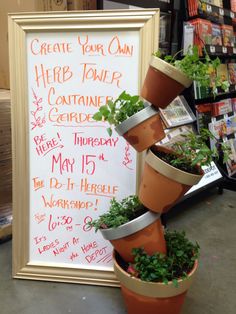 Create Your Own
Herb Tower
Container
Garden
Be Here! Thursday
May 15th
The Do-It-Herself
Workshop!
6:30 - 8
It's Ladies
Night At the
Home Depot